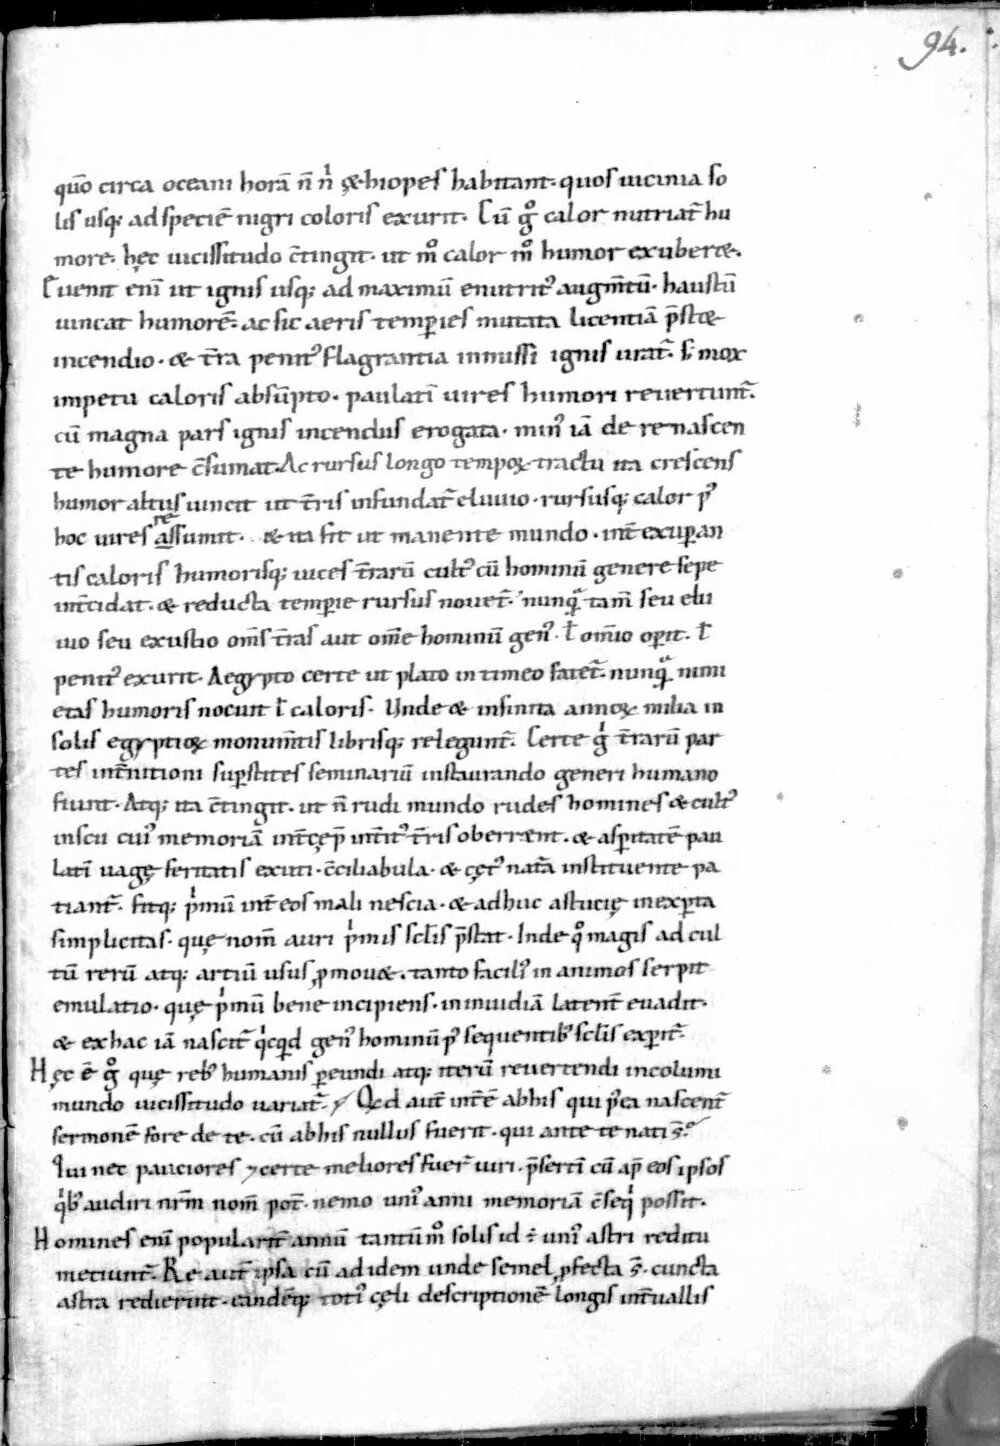 94.
quō circa oceani horā n̄ nͥ ę&hiopes habitant. quos uicinia so
lis usq; ad speciē nigri coloris exurit. Cū gͦ calor nutriat̄ hu
more. hęc uicissitudo c̄tingit. ut mͦ calor mͦ humor exuber&.
Euenit eni͞ ut ignis usq; ad maximū enutritꝰ augm̄tū. haustū
uincat humorē. ac sic aeris temꝑies mutata licentiā p̄st&
incendio. & t̄ra penitꝰ flagrantia inmissi ignis urat̄. s; mox
impetu caloris abs̄ūpto. paulati͞ uires humori reuertunt̄.
cū magna pars ignis incendiis erogata. minꝰ iā de renascen
te humore c̄sumat. Ac rursus longo tempoꝝ tractu ita crescens
humor altius uincit ut t̄ris infundat̄ eluuio. rursusq; calor pꝰ
hoc uires re assumit. & ita fit ut manente mundo. int̄ exuꝑan
tis caloris humorisq; uices t̄rarū cultꝰ cū hominū genere sępe
int̄cidat. & reducta temꝑie rursus nouet̄. nunqͣ tam̄ seu elu
uio seu exustio om̄s t̄ras aut om̄e hominū genꝰ. ł om̄io oꝑit. ł
penitꝰ exurit. Aegypto certe ut plato in timeo fatet̄. nunqͣ nimi
etas humoris nocuit ł caloris. Unde & infinita annoꝝ milia in
solis egyptioꝝ monum̄tis librisq; relegunt̄. Certe gͥ t̄rarū par
tes int̄nitioni suꝑstites seminariū instaurando generi humano
fiunt. Atq; ita c̄tingit. ut n̄ rudi mundo rudes homines & cultꝰ
inscii cuiꝰ memoriā int̄cęp̄ int̄itꝰ t̄ris oberrænt. & asꝑitatē pau
lati͞ uagę feritatis exuti. c̄ciliabula. & cętꝰ nat̄a instituente pa
tiant̄. fitq; pͥmū int̄ eos mali nescia. & adhuc astucię inexꝑta
simplicitas. quę nom̄ auri pͥmis sc̄lis p̄stat. Inde qͦ magis ad cul
tū rerū atq; artiū usus ꝓmou&. tanto faciliꝰ in animos serpit
emulatio. quę pͥmū bene incipiens. in inuidiā latent̄ euadit.
& ex hac iā nascit̄ qͥcqͥd genꝰ hominū pꝰ sequentibꝰ sc̄lis exꝑit̄.
Hęc ē gͦ quę rebꝰ humanis ꝑeundi atq; iterū reuertendi incolumi
mundo uicissitudo uariat̄. Qd aut̄ int̄ē abhis qui pꝰea nascent̄
sermonē fore de te. cū abhis nullus fuerit. qui ante te nati s̄?
Qui nec pauciores & certe meliores fuer̄ uiri. p̄serti͞ cū ap̄ eos ipsos
qͥbꝰ audiri nr̄m nom̄ pot̄. nemo uniꝰ anni memoriā c̄seqͥ possit.
Homines eni͞ popularit̄ annū tantūmͦ solis id ÷ uniꝰ astri reditu
metiunt̄. Re aut̄ ipsa cū ad idem unde semel ꝓfecta s̄. cuncta
astra redierint. eandēq; totiꝰ cęli descriptionē longis int̄uallis